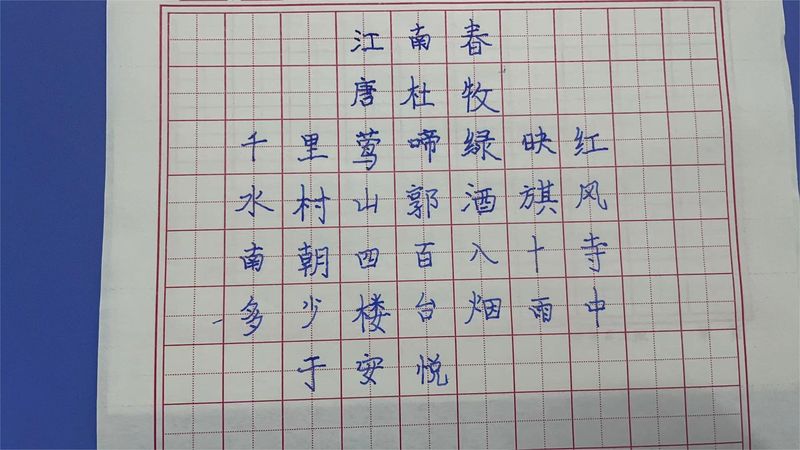 江南春
唐杜牧
千里莺啼绿映红
水村山郭酒旗风
南朝四百八十寺
多少楼台烟雨中
于安悦